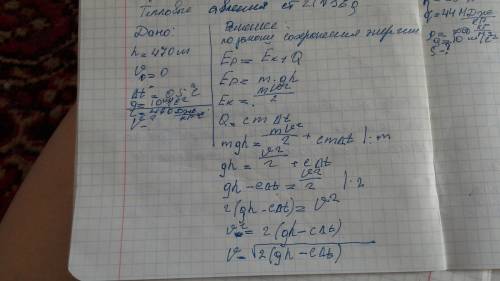 Тепловые явления ст 21 №369
Дано:
h = 470 м
v₀ = 0
Δt = 0,5 °C
g = 10 м/с²
c = 460 Дж/кг·°C
v –
Решение:
по закону сохранения энергии
Ep = Ek + Q
Ep = m·gh
Ek = mv²/2
Q = cmΔt
mgh = mv²/2 + cmΔt |:m
gh = v²/2 + cΔt
gh – cΔt = v²/2 |·2
2(gh – cΔt) = v²
v² = 2(gh – cΔt)
v = √2(gh – cΔt)